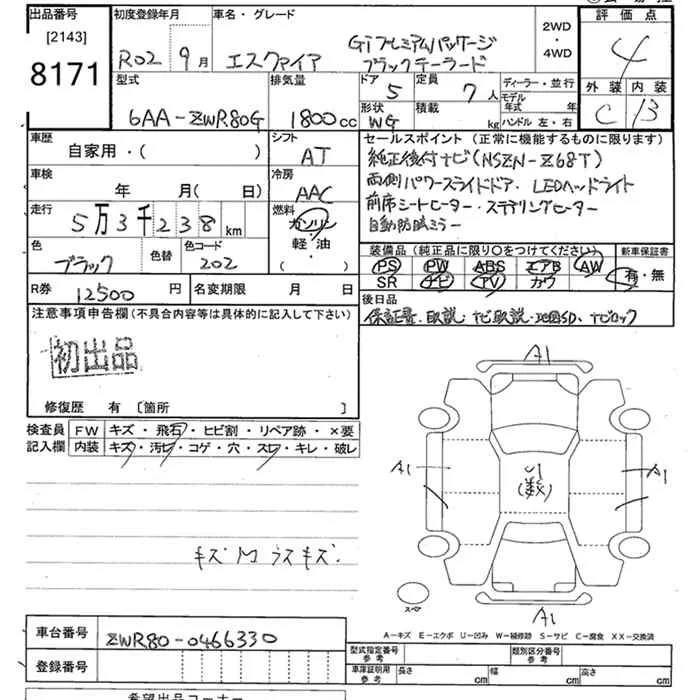 出品番号
[2143]
8171
初度登録年月
R02 9月
車名・グレード
エスクァイア
Giプレミアムパッケージ
ブラックテーラード
2WD
・
4WD
評価点
4
外装 内装
C B
型式
6AA-ZWR80G
排気量
1800cc
ドア
5
定員
7人
形状
WG
積載
kg
ディーラー・並行
モデル
年式 年
ハンドル 左・右
車歴
自家用・( )
シフト
AT
車検
年 月(日)
冷房
AAC
走行
5万3千238km
燃料
ガソリン
・
軽・油
( )
色
ブラック
色替
色コード
202
R券
12500円
名変期限 月 日
セールスポイント(正常に機能するものに限ります)
純正後付ナビ(NSZN-Z68T)
両側パワースライドドア・LEDヘッドライト
前席シートヒーター・ステアリングヒーター
自動防眩ミラー
装備品(純正品に限り○をつけてください)
新車保証書
PS PW ABS エアB AW
SR ナビ TV カワ
有・無
後日品
保証書・取説・ナビ取説・地図SD、ナビロック
注意事項申告欄(不具合内容等は具体的に記入して下さい)
初出品
修復歴 有 〔箇所 〕
検査員
記入欄
FW キズ・飛石・ヒビ割・リペア跡・×要
内装 キズ・汚レ・コゲ・穴・スレ・キレ・破レ
A1
A1
A1
(数)
A1
キズ
スペア
A-キズ E-エクボ U-凹み W-補修跡 S-サビ C-腐食 XX-交換済
車台番号
ZWR80-0466330
登録番号
型式指定番号
参考
類別区分番号
参考
車庫証明用
参考
長さ cm
幅 cm
高さ cm
希望出品コーナー